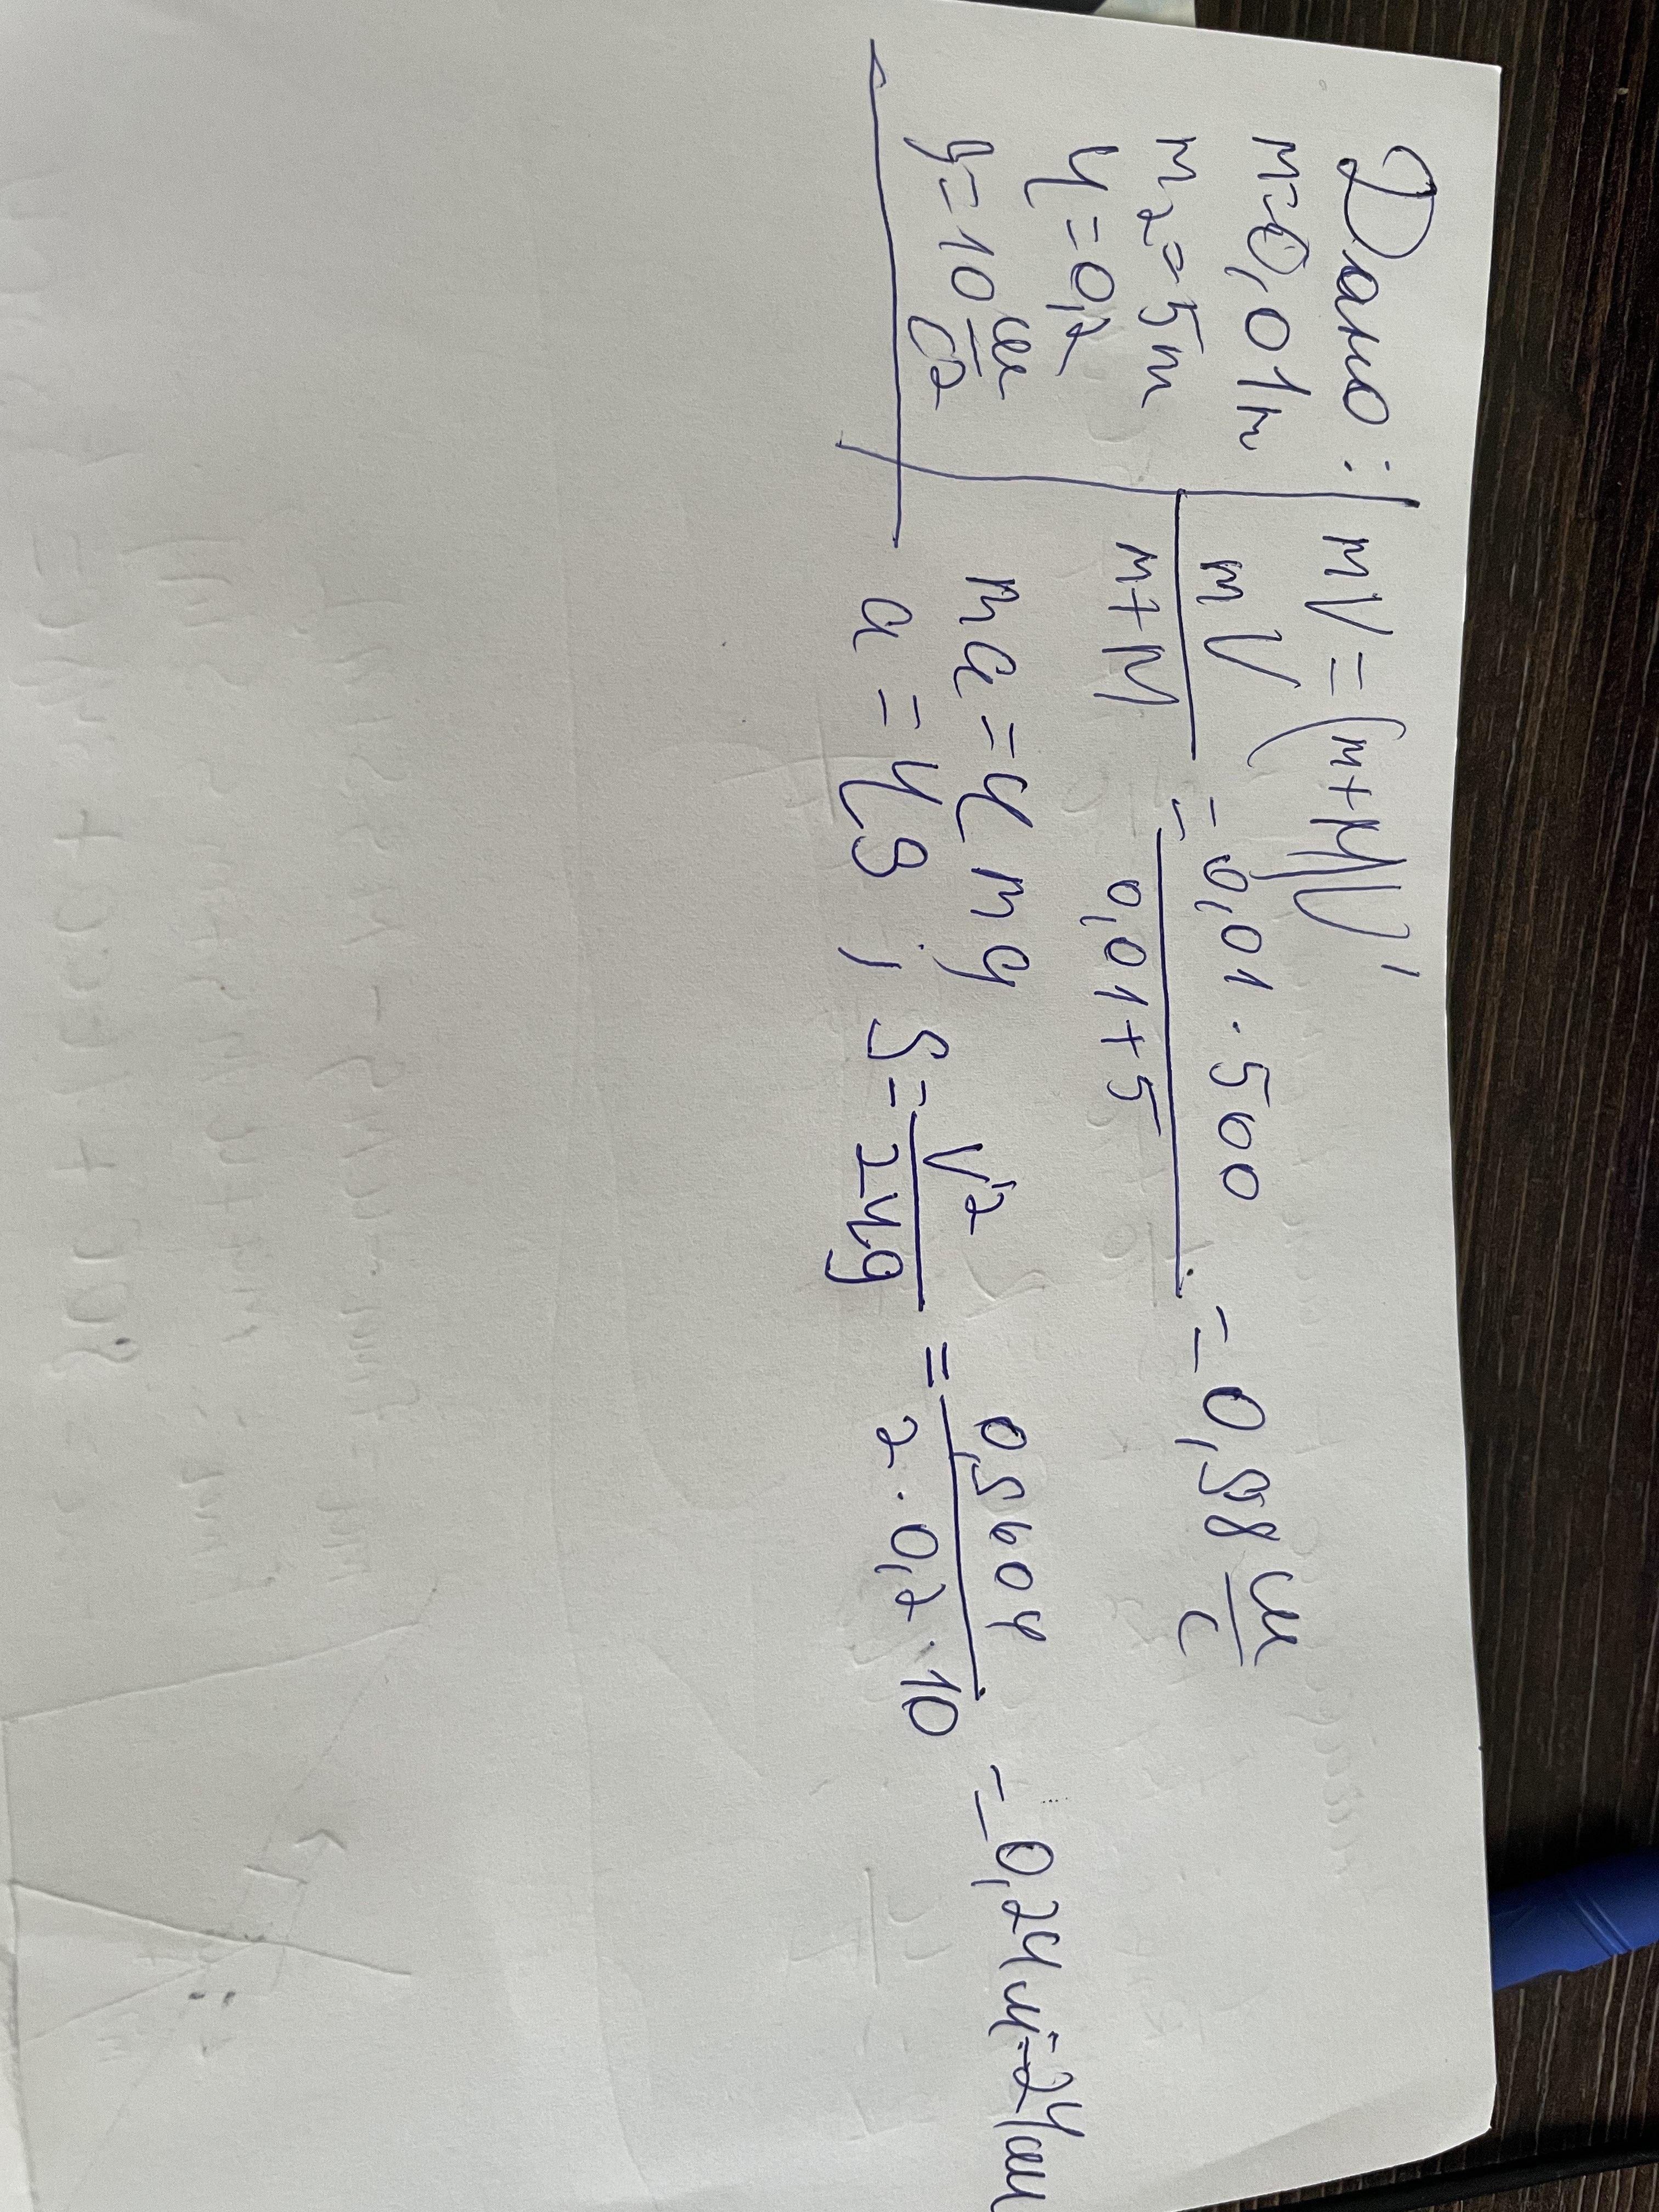 Дано:
m=0,01т
m2=5т
μ=0,2
g=10 м/с2
mV=(m+M)V'
mV/m+M = 0,01·500/0,01+5 = 0,998 м/с
ma=μmg
a=μg; S=V'2/2μg = 0,9604/2·0,2·10 = 0,24м=24см